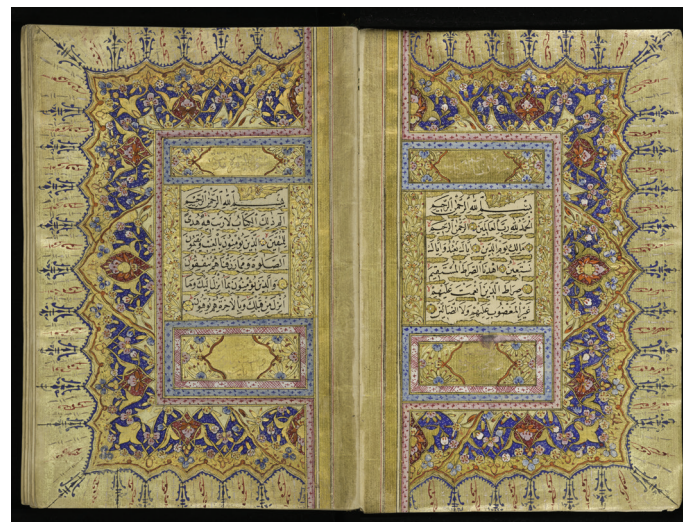 بسم الله الرحمن الرحيم
الحمد لله رب العالمين الرحمن الرحيم
مالك يوم الدين اياك نعبد واياك
نستعين اهدنا الصراط المستقيم
صراط الذين انعمت عليهم
غير المغضوب عليهم ولا الضالين
بسم الله الرحمن الرحيم
الم ذلك الكتاب لا ريب فيه هدى
للمتقين الذين يؤمنون بالغيب ويقيمون
الصلوة ومما رزقناهم ينفقون
والذين يؤمنون بما انزل اليك وما
انزل من قبلك وبالاخرة هم يوقنون